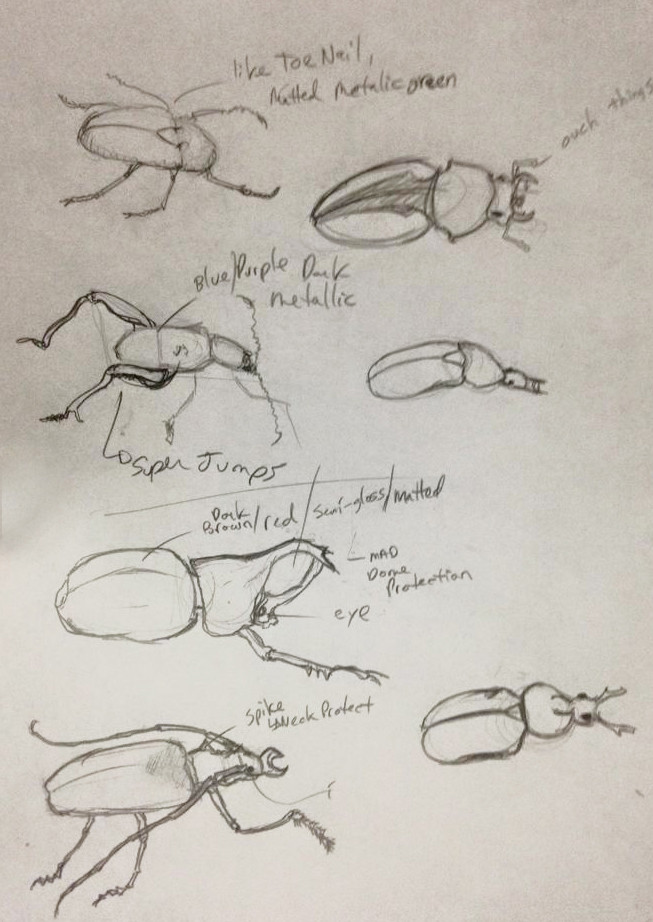 like Toe Nail,
Matted Metalic green
ouch things
Blue/Purple Dark
metallic
Super Jumps
Dark
Brown/red/semi-gloss/matted
MAD
Dome
Protection
eye
Spike
Neck Protect